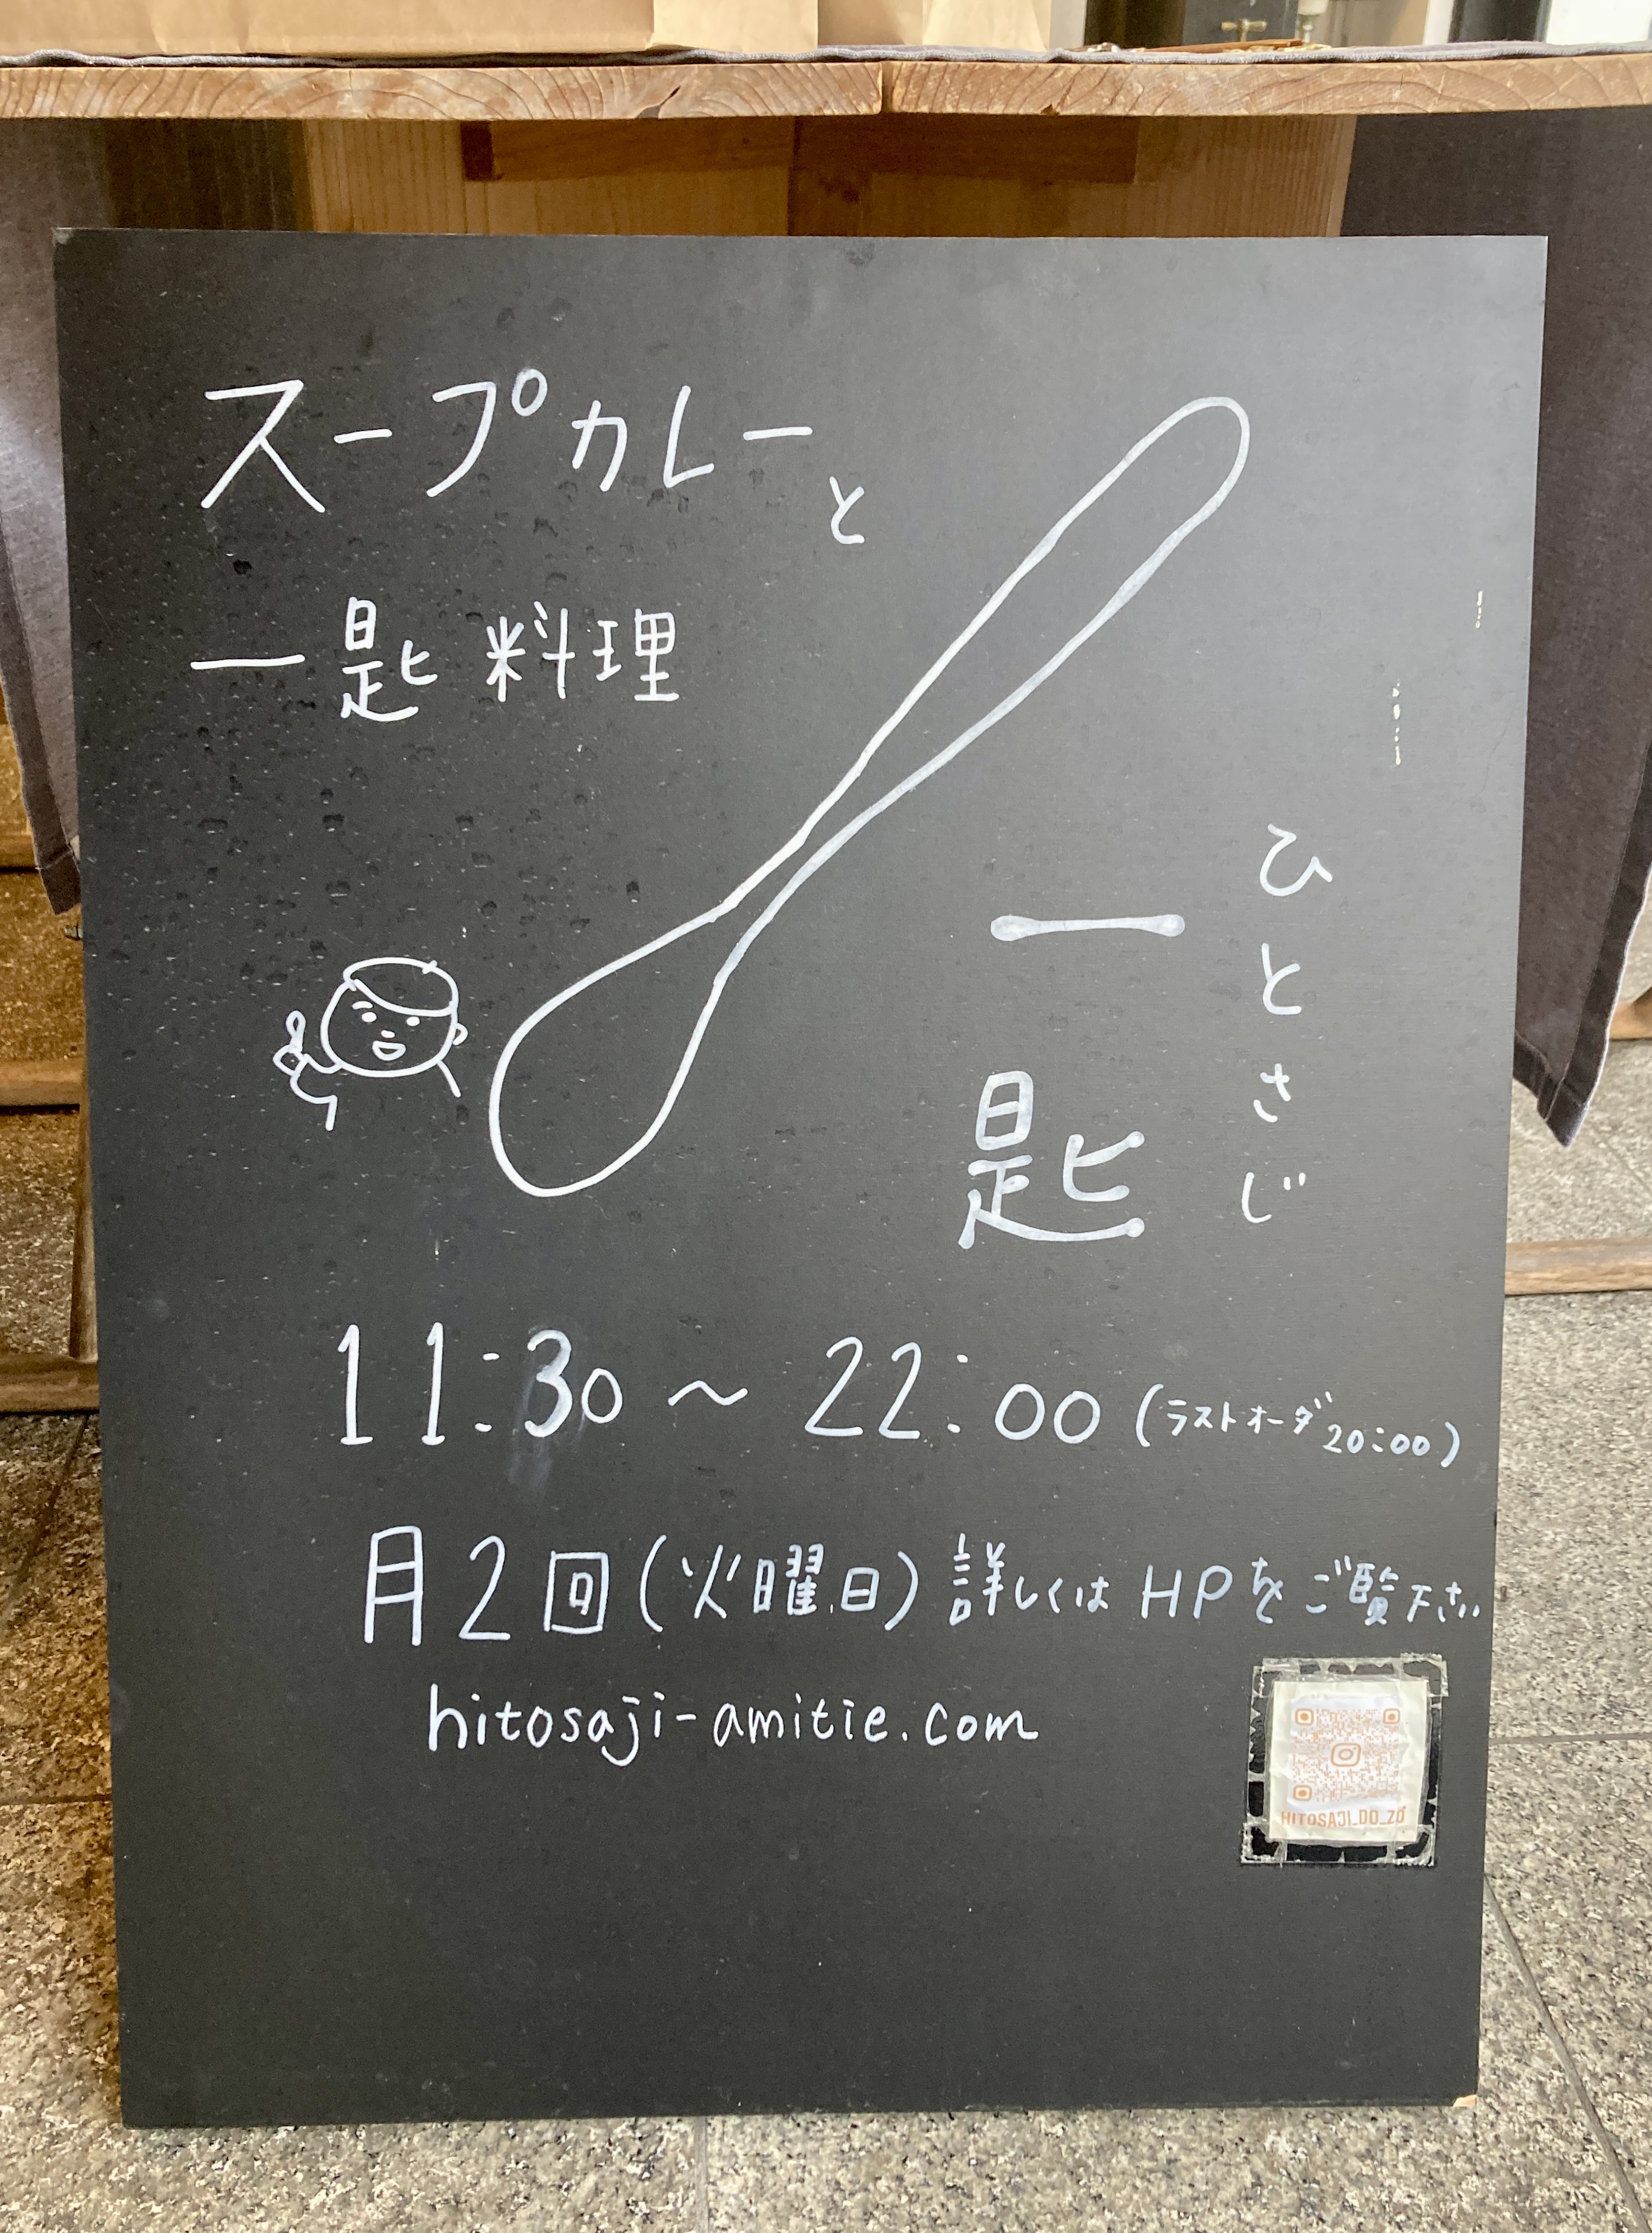 スープカレーと
一匙料理
一匙
ひとさじ
11:30～22:00(ラストオーダ20:00)
月2回(火曜日)詳しくはHPをご覧下さい
hitosaji-amitie.com
HITOSAJI_DO_ZO